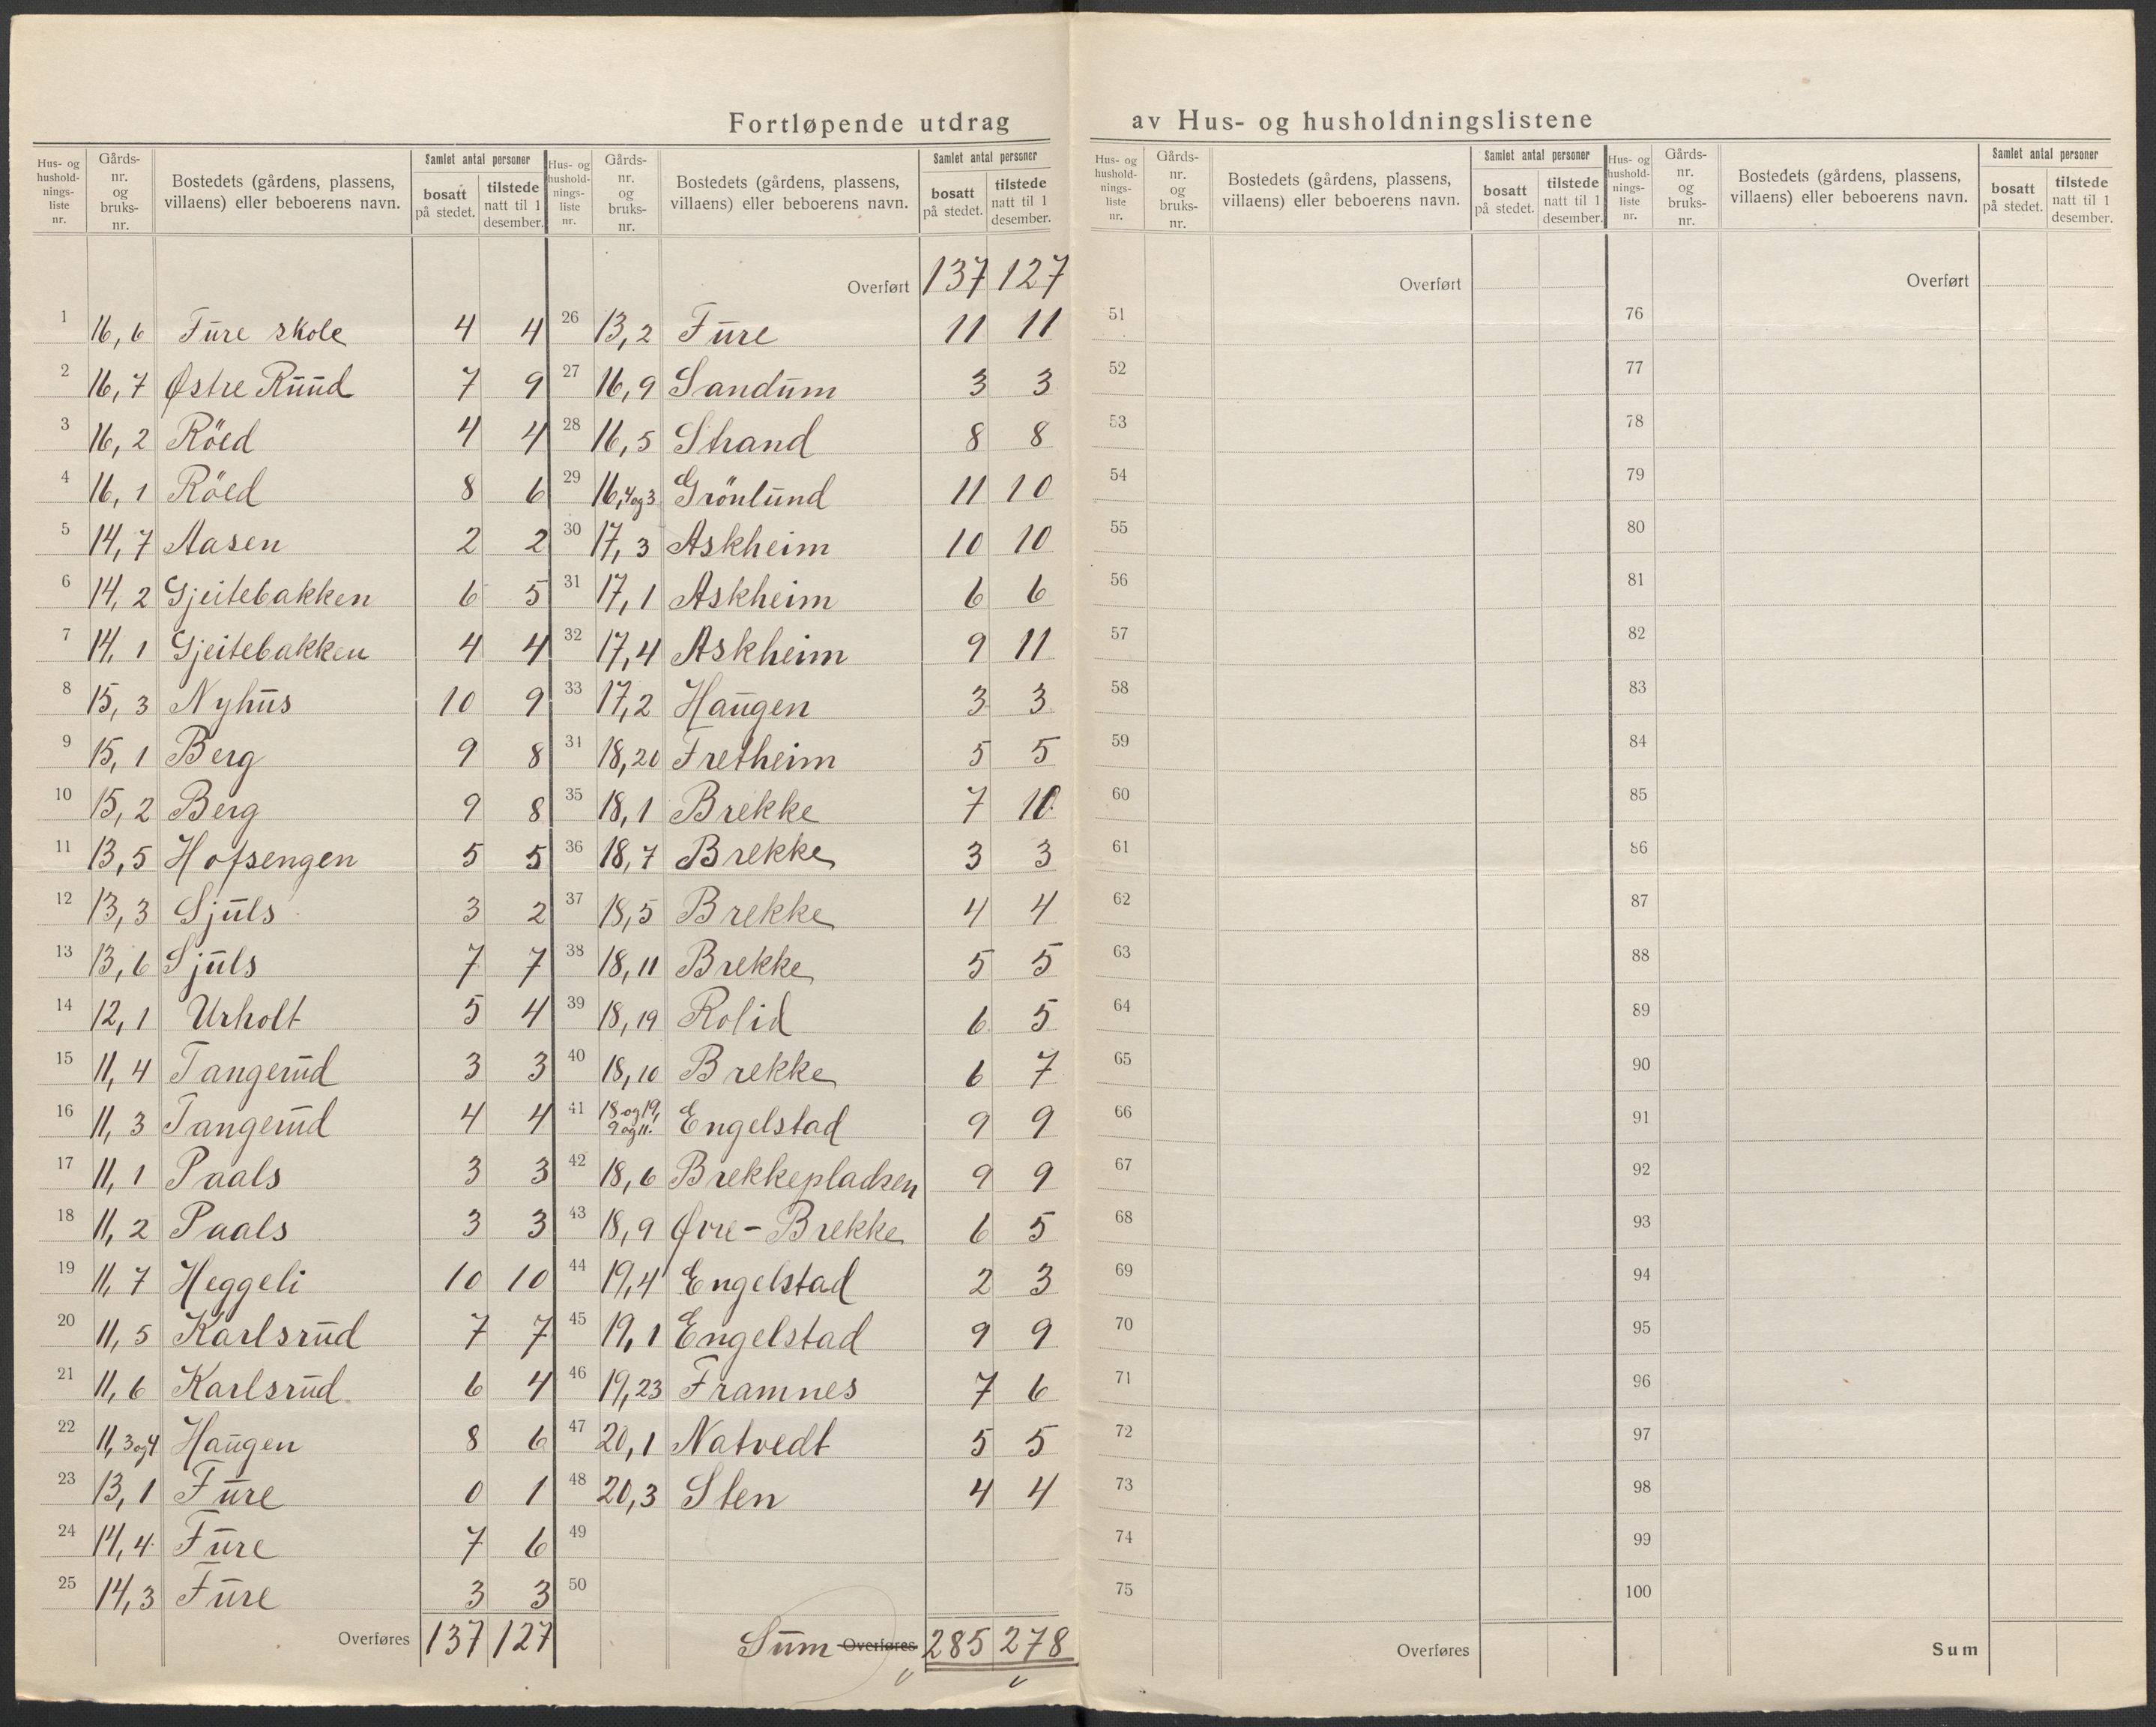 Fortløpende utdrag av Hus- og husholdningslistene
Hus- og hushold- nings- liste nr. | Gårds- nr. og bruks- nr. | Bostedets (gårdens, plassens, villaens) eller beboerens navn. | Samlet antal personer | bosatt på stedet. | tilstede natt til 1 desember.
1 16,6 Fure skole 4 4
2 16,7 Østre Ruud 7 9
3 16,2 Röed 4 4
4 16,1 Röed 8 6
5 14,7 Aasen 2 2
6 14,2 Gjeitebakken 6 5
7 14,1 Gjeitebakken 4 4
8 15,3 Nyhus 10 9
9 15,1 Berg 9 8
10 15,2 Berg 9 8
11 13,5 Hofsengen 5 5
12 13,3 Sjuls 3 2
13 13,6 Sjuls 7 7
14 12,1 Urholt 5 4
15 11,4 Tangerud 3 3
16 11,3 Tangerud 4 4
17 11,1 Paals 3 3
18 11,2 Paals 3 3
19 11,7 Heggeli 10 10
20 11,5 Karlsrud 7 7
21 11,6 Karlsrud 6 4
22 11,3og4 Haugen 8 6
23 13,1 Fure 0 1
24 14,4 Fure 7 6
25 14,3 Fure 3 3
Overføres 137 127
Hus- og hushold- nings- liste nr. | Gårds- nr. og bruks- nr. | Bostedets (gårdens, plassens, villaens) eller beboerens navn. | Samlet antal personer | bosatt på stedet. | tilstede natt til 1 desember.
Overført 137 127
26 13,2 Fure 11 11
27 16,9 Sandum 3 3
28 16,5 Strand 8 8
29 16,4og3 Grönlund 11 10
30 17,3 Askheim 10 10
31 17,1 Askheim 6 6
32 17,4 Askheim 9 11
33 17,2 Haugen 3 3
31 18,20 Fretheim 5 5
35 18,1 Brekke 7 10
36 18,7 Brekke 3 3
37 18,5 Brekke 4 4
38 18,11 Brekke 5 5
39 18,19 Rolid 6 5
40 18,10 Brekke 6 7
41 18og19, 9og11. Engelstad 9 9
42 18,6 Brekkepladsen 9 9
43 18,9 Øvre-Brekke 6 5
44 19,4 Engelstad 2 3
45 19,1 Engelstad 9 9
46 19,23 Framnes 7 6
47 20,1 Natvedt 5 5
48 20,3 Sten 4 4
49
50
Sum Overføres 285 278
Hus- og hushold- nings- liste nr. | Gårds- nr. og bruks- nr. | Bostedets (gårdens, plassens, villaens) eller beboerens navn. | Samlet antal personer | bosatt på stedet. | tilstede natt til 1 desember.
Overført
51
52
53
54
55
56
57
58
59
60
61
62
63
64
65
66
67
68
69
70
71
72
73
74
75
Overføres
Hus- og hushold- nings- liste nr. | Gårds- nr. og bruks- nr. | Bostedets (gårdens, plassens, villaens) eller beboerens navn. | Samlet antal personer | bosatt på stedet. | tilstede natt til 1 desember.
Overført
76
77
78
79
80
81
82
83
84
85
86
87
88
89
90
91
92
93
94
95
96
97
98
99
100
Sum